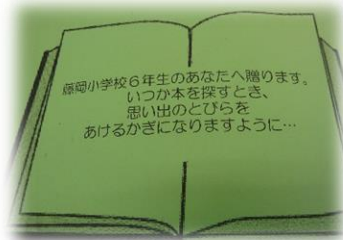 藤岡小学校6年生のあなたへ贈ります。
いつか本を探すとき、
思い出のとびらを
あけるかぎになりますように…